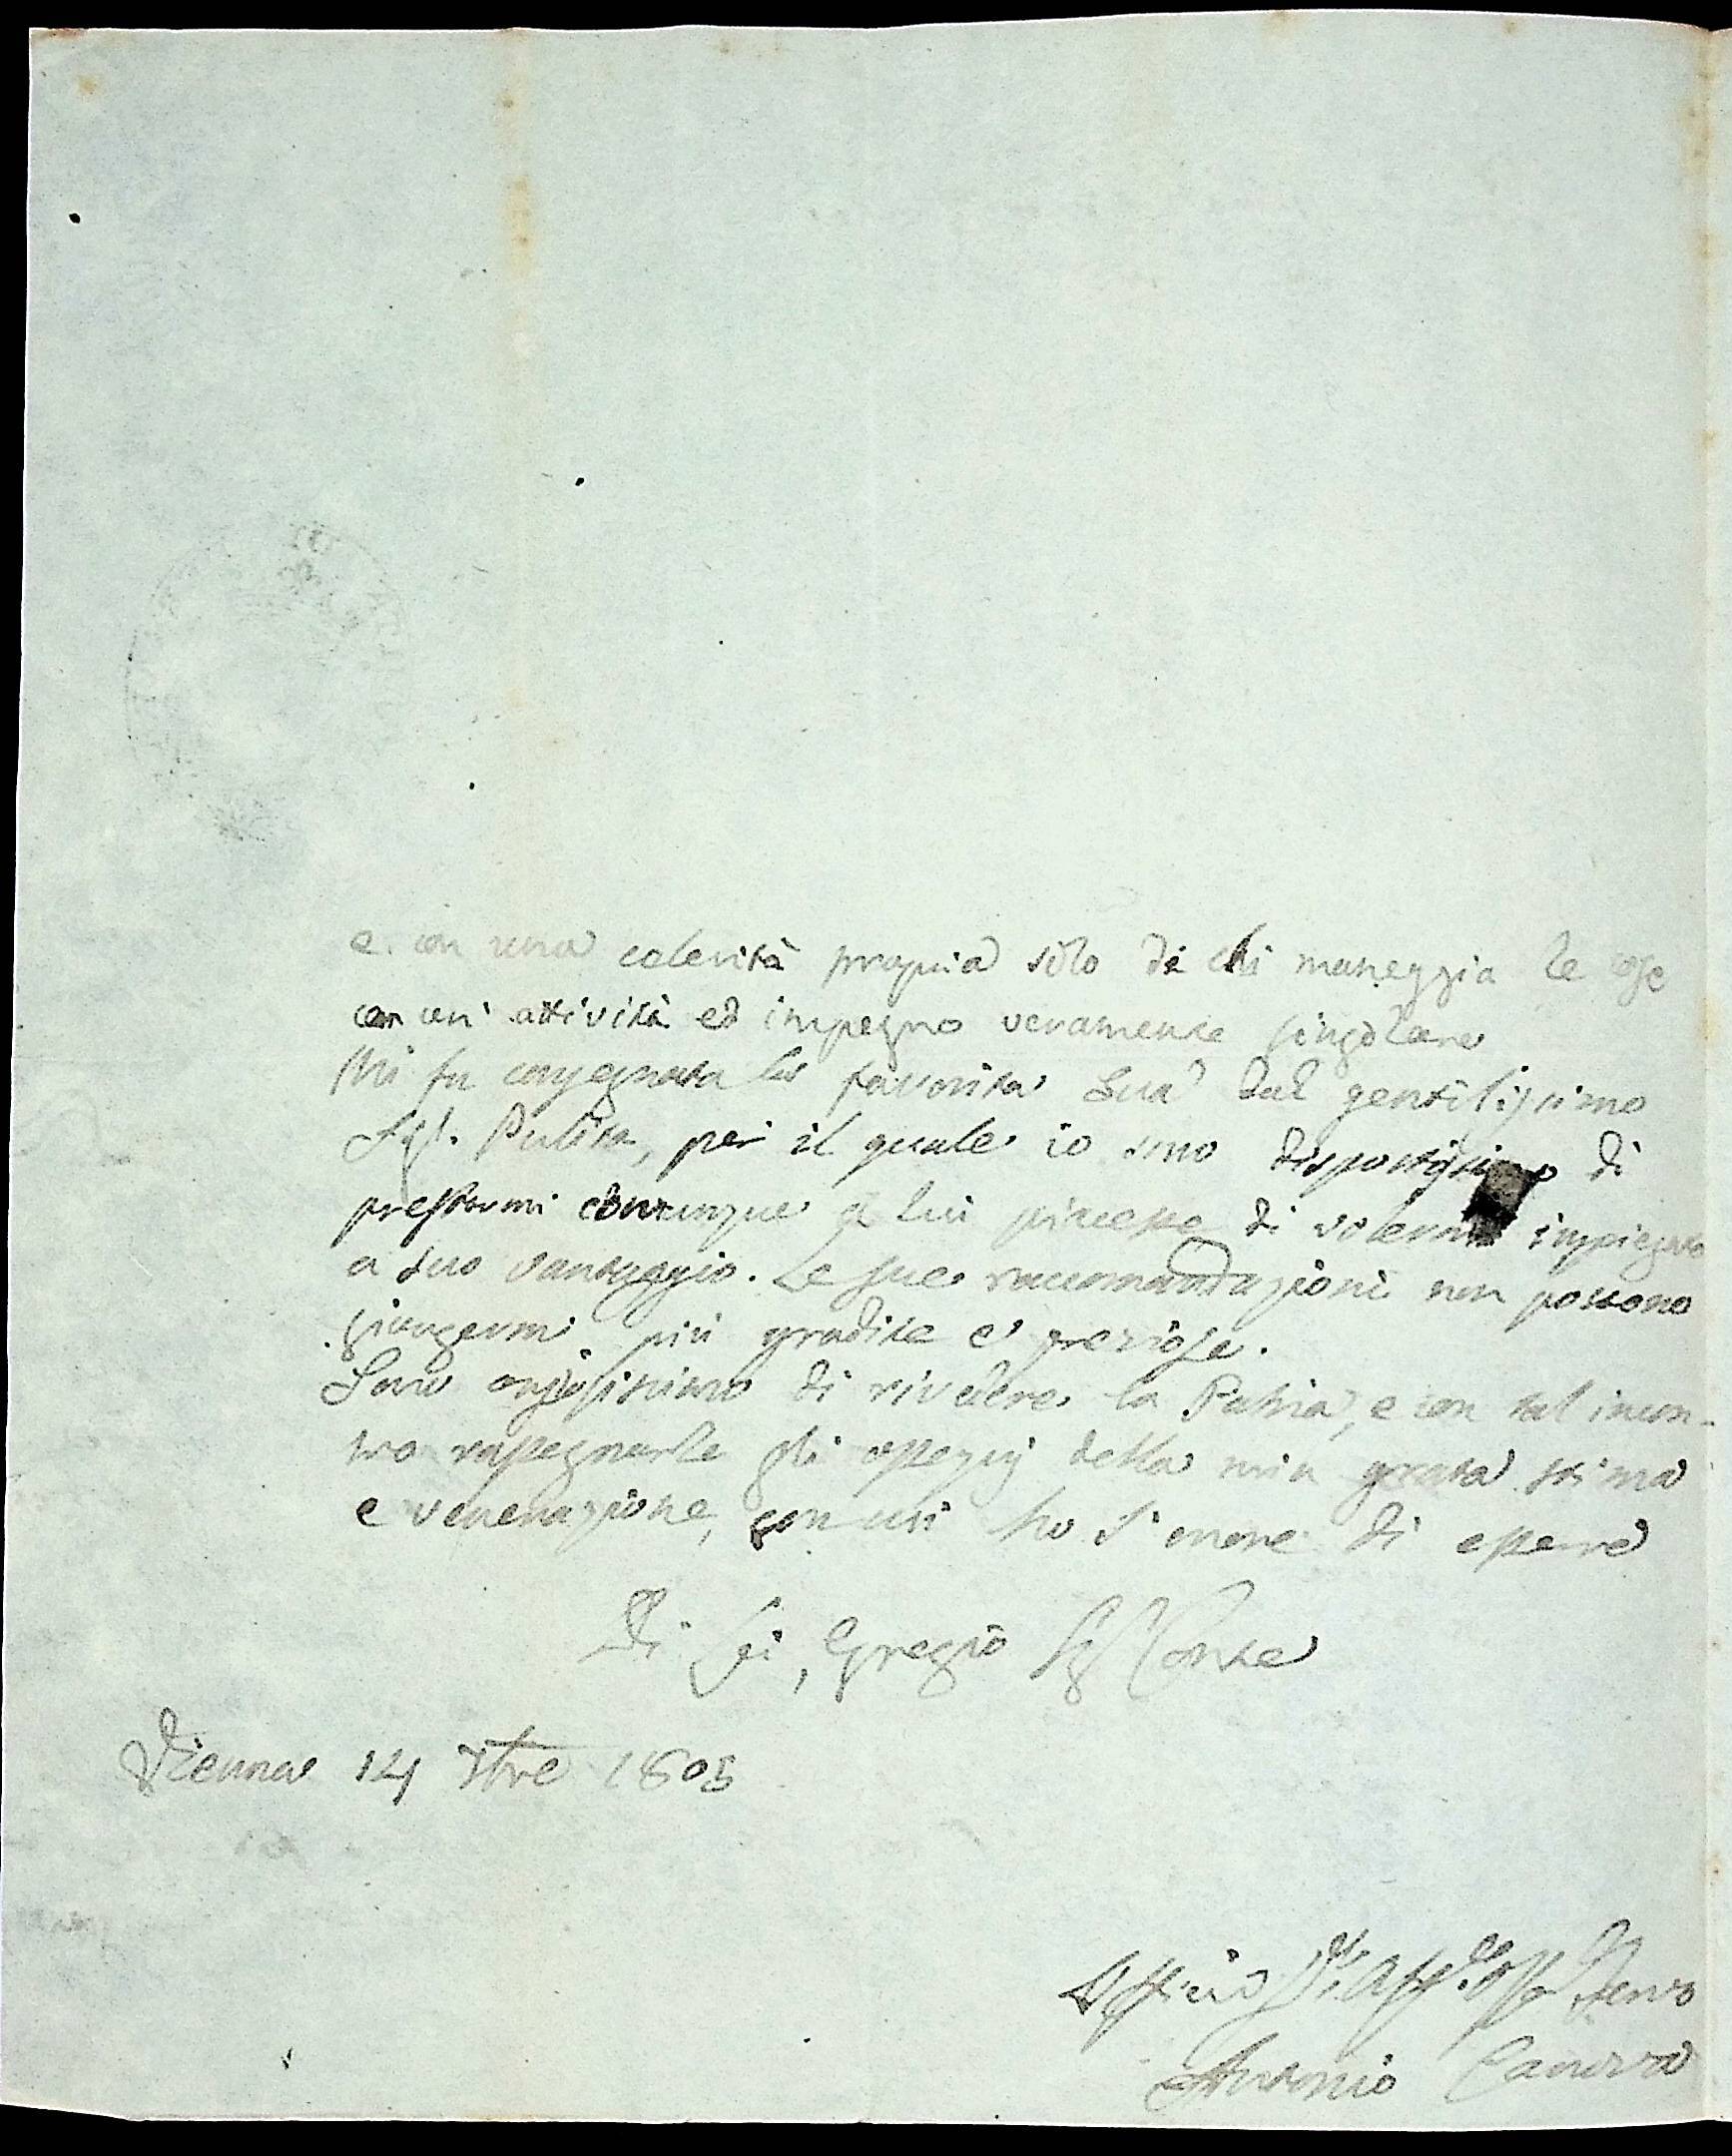 e con una celerità propria solo di chi maneggia le cose
con un' attività ed impegno veramente singolare
Mi fu consegnata la favorita Sua dal gentilissimo
Sigr. per il quale io sono dispostissimo di
prestarmi comunque a lui piacesse di volermi impiegato
a suo vantaggio. Le sue raccomandazioni non possono
giungermi più gradite e preziose.
Sono ansiosissimo di rivedere la Patria, e con tal incon-
tro rassegnarle gli ossequj della mia grata stima
e venerazione, con cui ho l'onore di essere
Di Lei, Egregio Sigr Conte
Vienna 14 7bre 1805
Servo
Antonio Canova